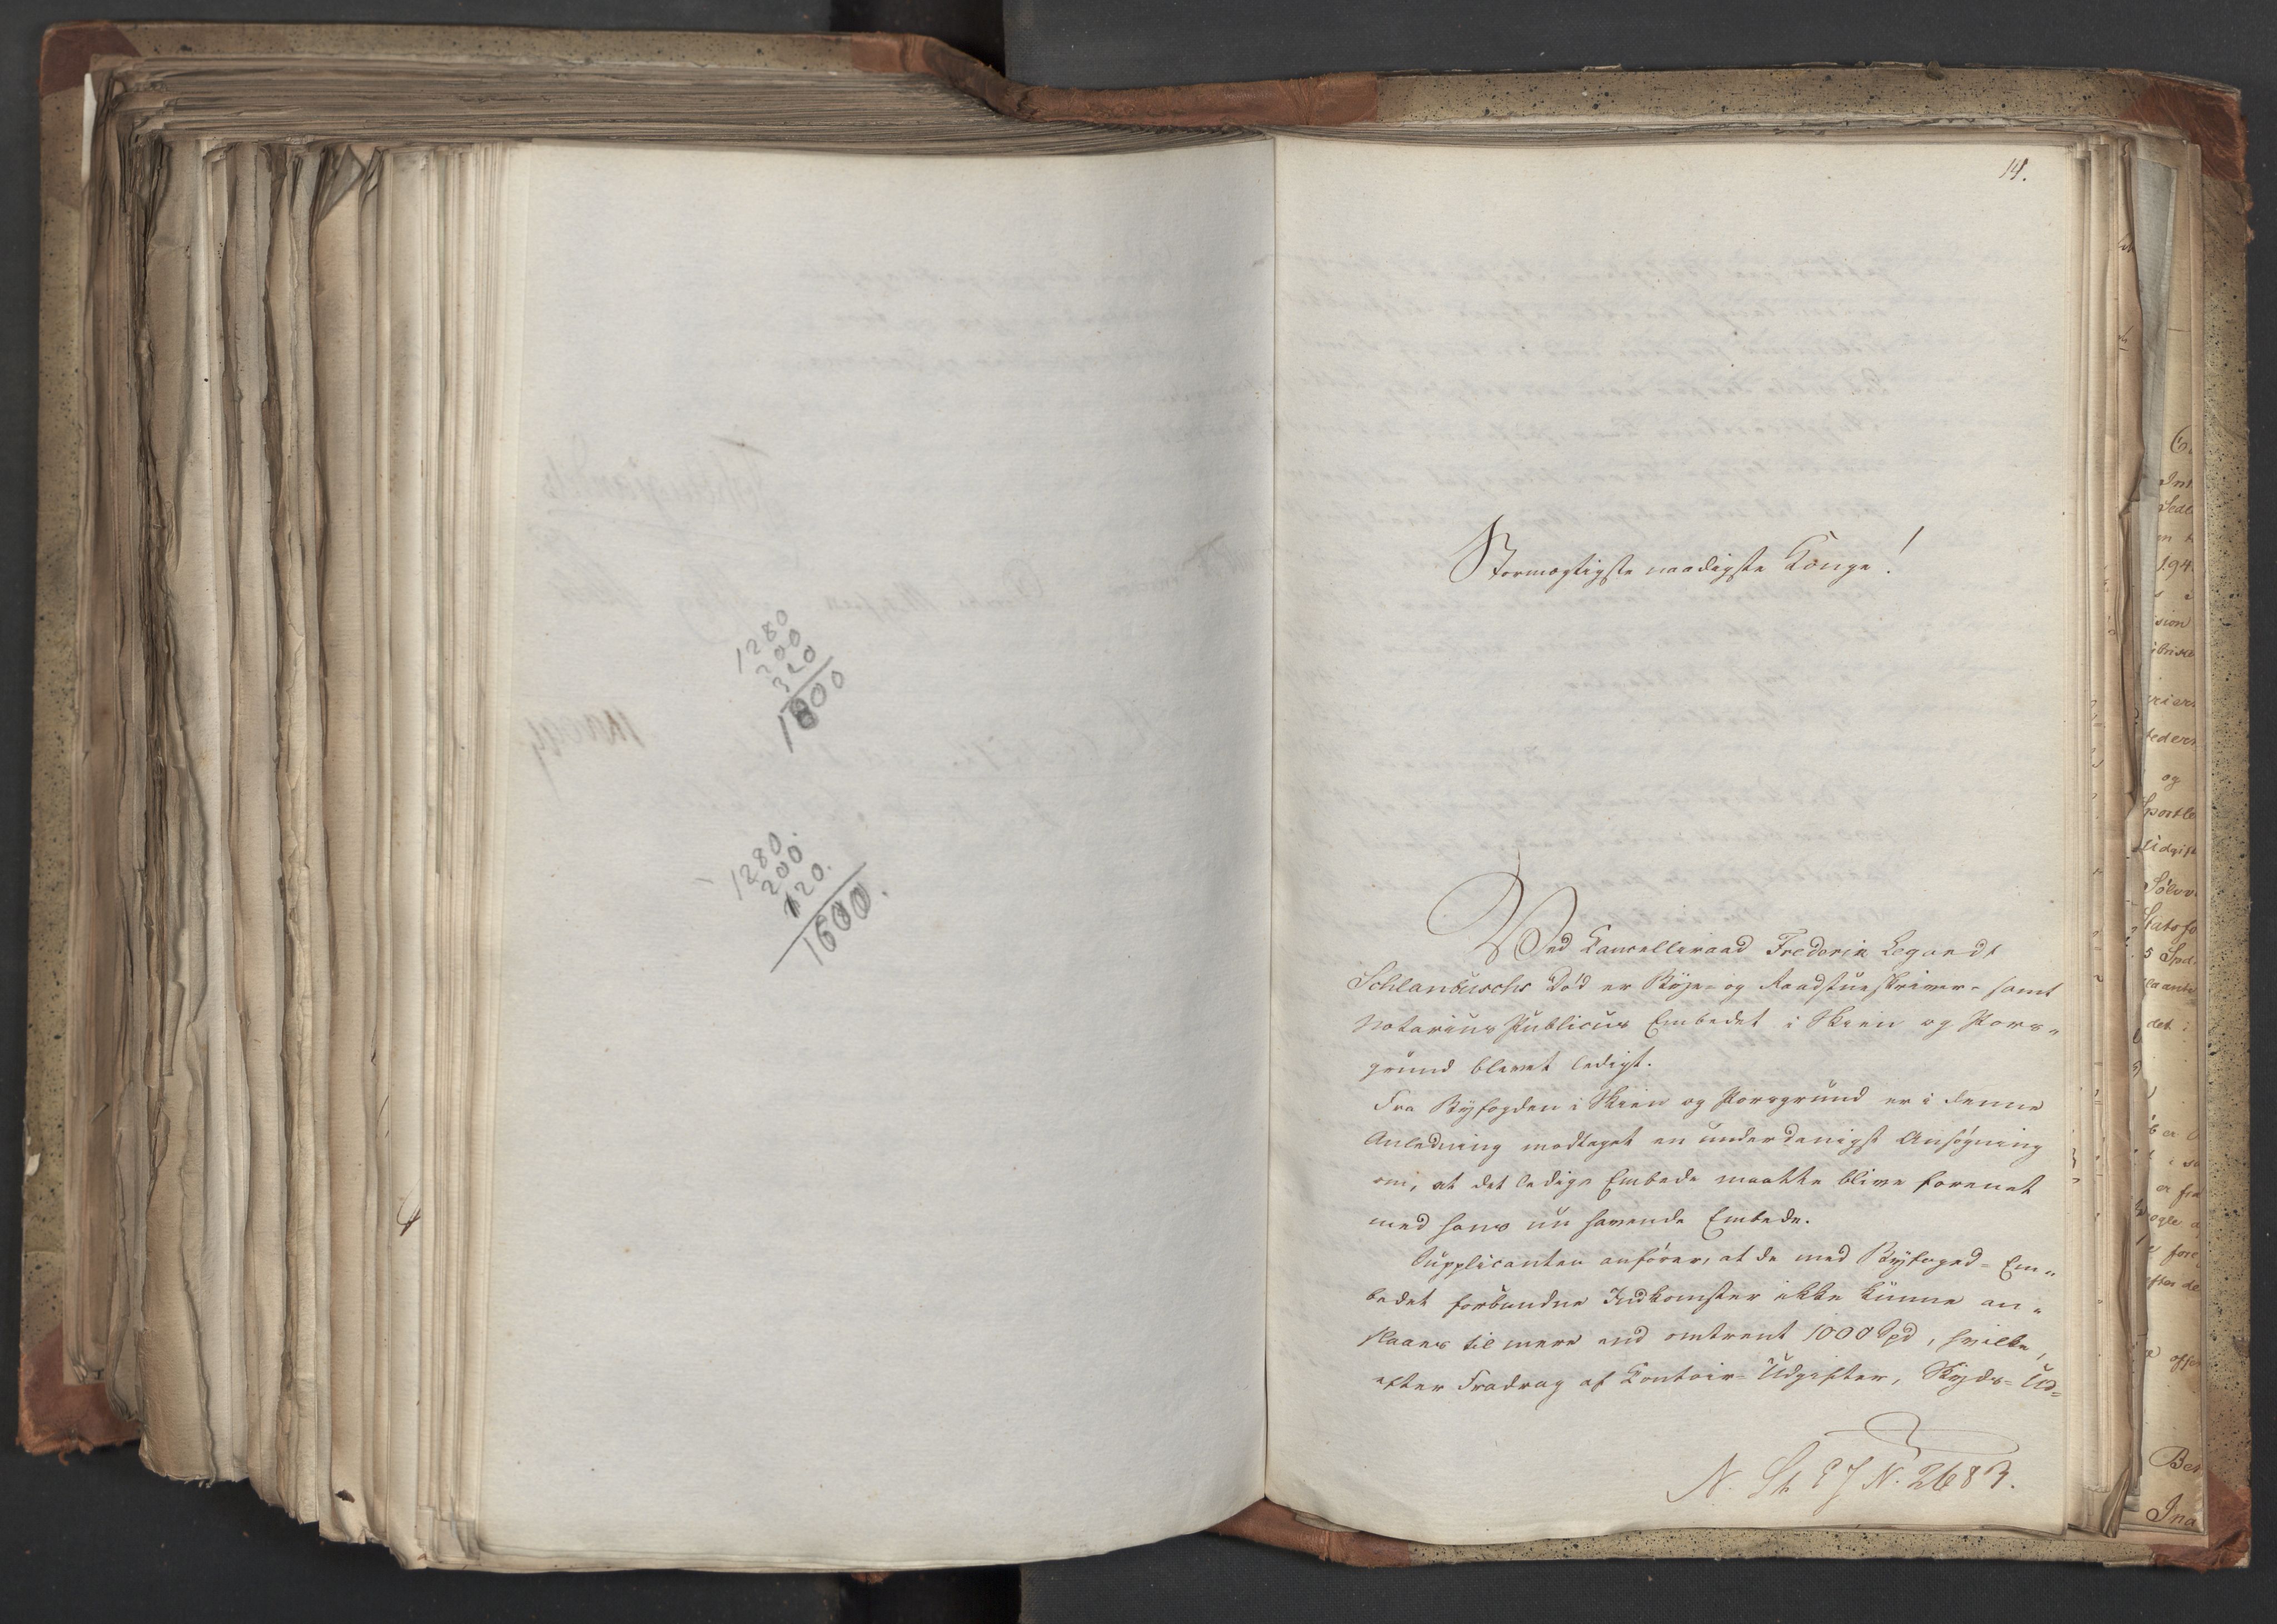 1280
200
320
1800
1280.
200.
120.
1600.
14.
Stormægtigste naadigste Konge!
Ved Cancelliraad Frederik Legardt
Schlanbuschs Död er Böje- og Raadstueskriver- samt
Notarius Publicus Embedet i Skien og Pors-
grund blevet ledigt.
Fra Byfogden i Skien og Porsgrund er i denne
Anledning modtaget en underdanigst Ansögning
om, at det ledige Embede maatte blive forenet
med hans nu havende Embede.
Supplicanten anförer, at de med Byfoged- Em-
bedet forbundne Indkomster ikke kunne an-
slaaes til mere end omtrent 1000 Spd, hvilke,
efter Fradrag af Contoir- Udgifter, Skyds- Ud-
N. 2683.